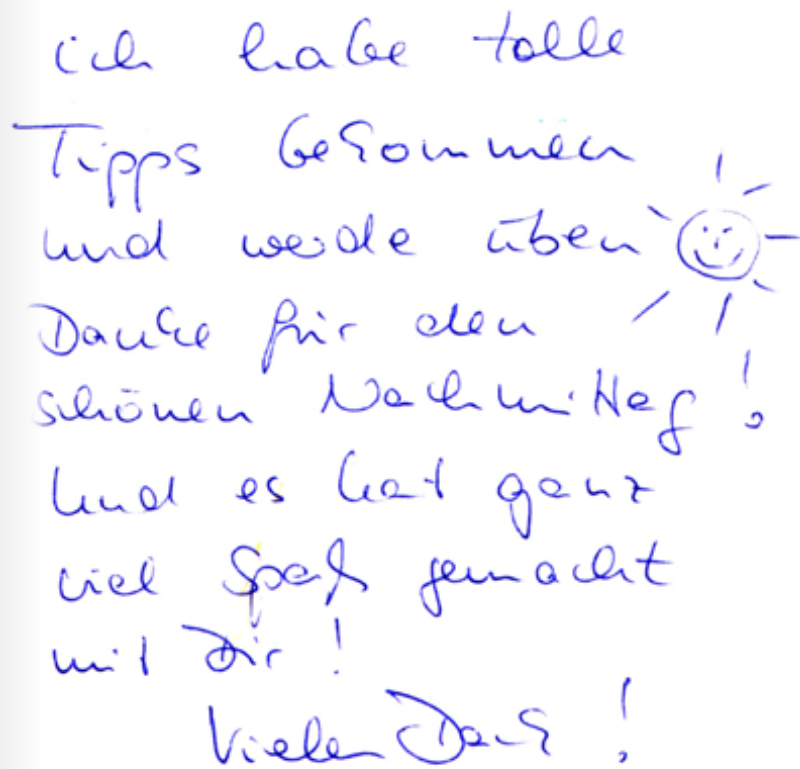 ich habe tolle
Tipps bekommen
und werde üben
Danke für den
schönen Nachmittag!
Und es hat ganz
viel Spaß gemacht
mit Dir!
Vielen Dank!